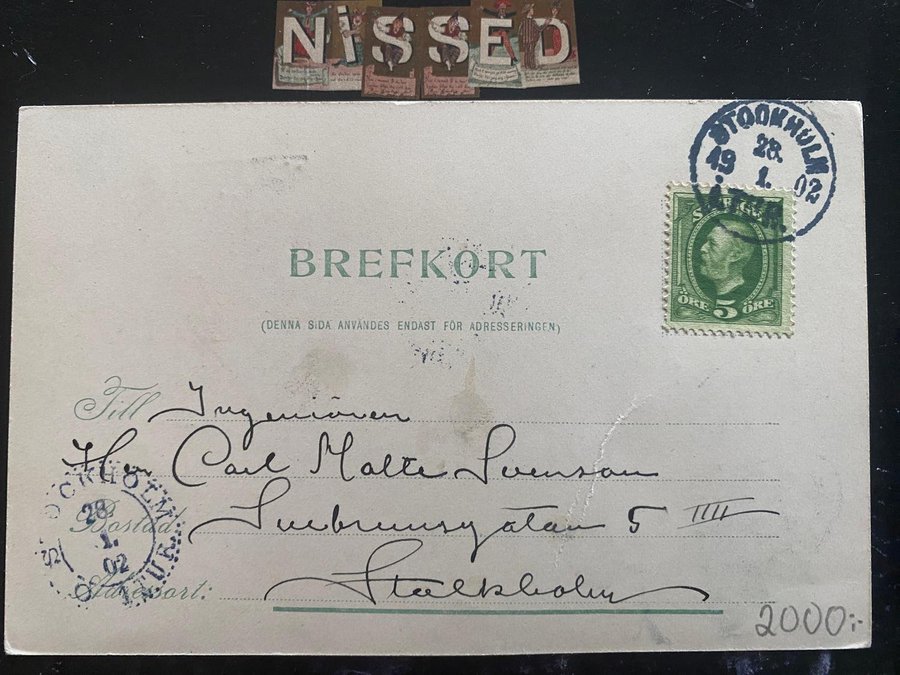 NiSSED
STOCKHOLM
28.
19 1. 02
1.TUR
SVERIGE
ÖRE 5 ÖRE
BREFKORT
(DENNA SIDA ANVÄNDES ENDAST FÖR ADRESSERINGEN)
Till Ingeniören
Herr Carl Malte Svenson
Bostad: 5 IIII
Adressort: Stockholm
STOCKHOLM
28.
1.
02
1.TUR
2000:-